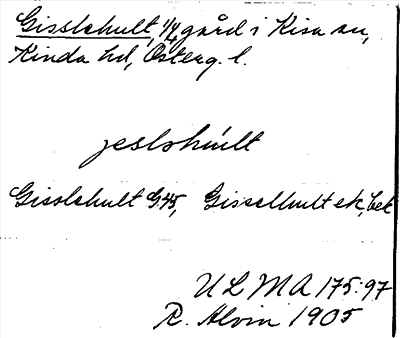 Gisslehult, 1/4 gård i Kisa sn,
Kinda hd, Österg. l.
jeslohúlt
Gisslehult G45, Gisselhult ek, bek
ULMA 175:97
R. Alvin 1905